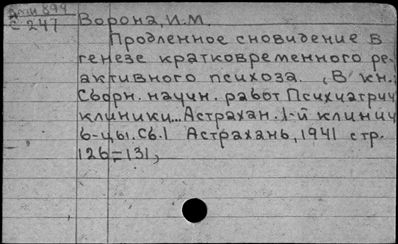 С 247
Ворона, И.М.
Продленное сновидение в
генезе кратковременного ре-
активного психоза. (В кн.:
Сборн. научн. работ Психиатрич
клиники... Астрахан. 1-й клинич
б-цы. Сб.1 Астрахань, 1941 стр.
126=131,